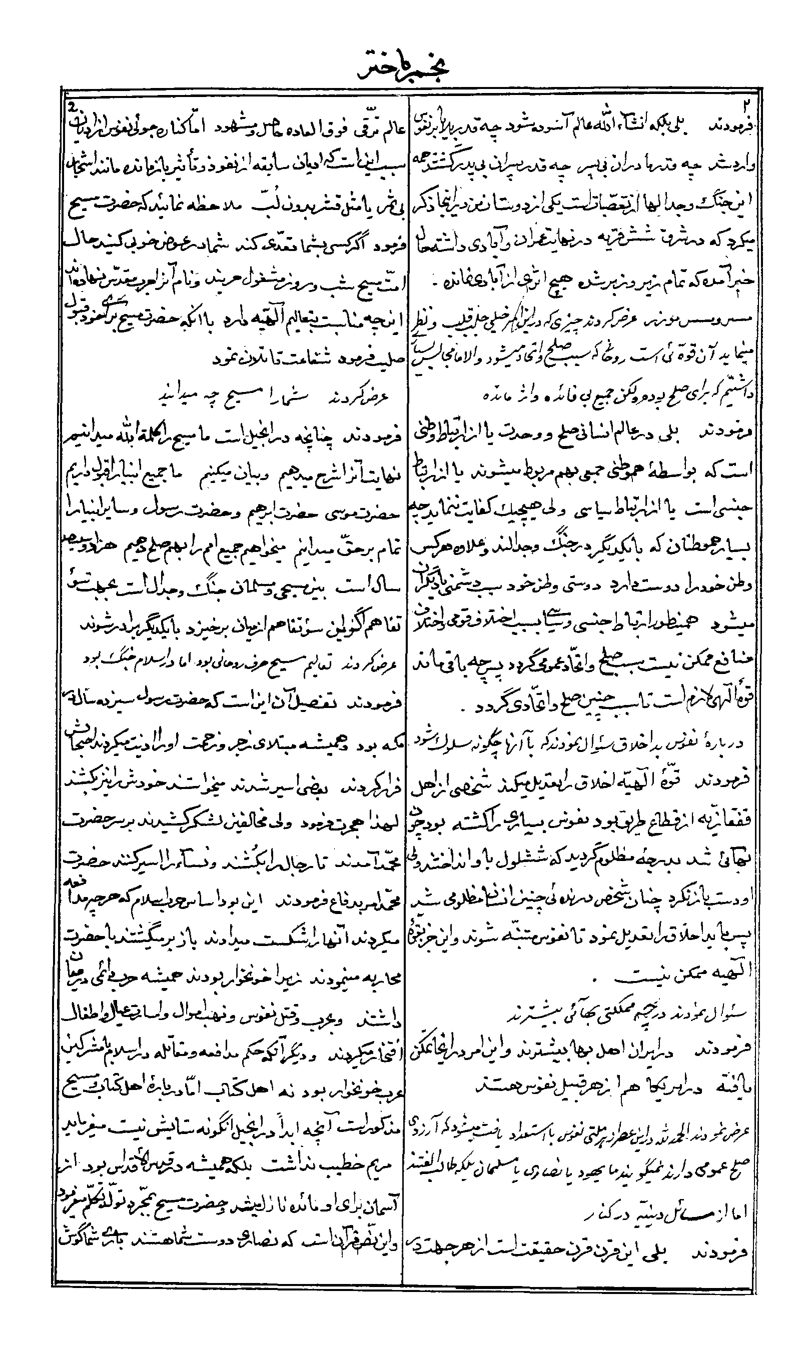 نجم باختر
۲
فرمودند بلی بلکه انشاء الله عالم آسوده شود چه قدر بلایا بر نفوس
وارد شد چه قدر مادران بی پسر چه قدر پسران بی پدر گشتند همه
این جنگ و جدالها از تعصبات است یکی از دوستان من در اینجا ذکر
میکرد که در شرق شش قریه در نهایت عمران و آبادی داشته حال
خبر آمده که تمام زیر و زبر شده هیچ اثری از آبادی نمانده .
عرض کردند چیزی که در این امر خیلی جلب قلب و نظر
مینماید آن قوه ئی است روحانی که سبب صلح و اتحاد میشود و الا ما مجالس بسیار
داشتیم که برای صلح بوده ولکن جمیع بی فائده و اثر مانده
فرمودند بلی در عالم انسانی صلح و وحدت یا از ارتباط وطنی
است که بواسطهٔ هموطنی جمعی بهم مربوط میشوند یا از ارتباط
جنسی است یا از ارتباط سیاسی ولی هیچیک کفایت ننماید چه
بسیار هموطنان که با یکدیگر در جنگ و جدالند و علاوه هر کس
وطن خود را دوست دارد دوستی وطن خود سبب دشمنی با دیگران
میشود همینطور ارتباط جنسی و سیاسی بسبب اختلاف قومی و اختلاف
منافع ممکن نیست سبب صلح و اتحاد عمومی گردد پس چه باقی ماند
قوهٔ الهی لازم است تا سبب چنین صلح و اتحادی گردد .
دربارهٔ نفوس بد اخلاق سؤال نمودند که با آنها چگونه سلوک شود
فرمودند قوّهٔ الهیّه اخلاق را تعدیل میکند شخصی از اهل
قفقازیه از قطاع طریق بود نفوس بسیاری را کشته بود چون
بهائی شد بدرجه مظلوم گردید که ششلول باو انداختند ولی
او دست باز نکرد چنان شخص درنده ئی چنین انسان مظلومی شد
پس باید اخلاق را تعدیل نمود تا نفوس متنبّه شوند و این جز بقوّهٔ
الهیه ممکن نیست .
سئوال نمودند در چه مملکتی بهائی بیشترند
فرمودند در ایران اهل بهاء بیشترند و این امر در آنجا تمکّن
یافته در امریکا هم از هر قبیل نفوس هستند
عرض نمودند الحمد لله در این عصر از هر ملتی نفوس با استعداد یافت میشود که آرزوی
صلح عمومی دارند نمیگویند ما یهود یا نصاری یا مسلمان بلکه طالب الفتند
اما از مسائل دینیّه در کنار
فرمودند بلی این قرن قرن حقیقت است از هر جهت در
2
عالم ترقّی فوق العاده حاصل و مشهود امّا کناره جوئی نفوس از ادیان
سبب این است که ادیان سابقه از نفوذ و تأثیر باز مانده مانند اشجار
بی ثمر یا مثل قشر بدون لبّ ملاحظه نمائید که حضرت مسیح
فرمود اگر کسی بشما تعدّی کند شما در عوض خوبی کنید حال
امت مسیح شب و روز مشغول حربند و نام آنرا حرب مقدّس نهاده‌اند
این چه مناسبت بتعالیم الهیّه دارد با آنکه حضرت مسیح برای خود قبول
صلیب فرمود شفاعت قاتلان نمود
عرض کردند شما را مسیح چه میدانید
فرمودند چنانچه در انجیل است ما مسیح را کلمة الله میدانیم
نهایت آنرا شرح میدهیم و بیان میکنیم ما جمیع انبیاء را قبول داریم
حضرت موسی حضرت ابراهیم و حضرت رسول و سایر انبیا را
تمام بر حقّ میدانیم میخواهیم جمیع امم را بهم صلح دهیم هزار و سیصد
سال است بین مسیحی و مسلمان جنگ و جدال است بجهت سوء
تفاهم اکنون این سوء تفاهم از میان برخیزد با یکدیگر برادر شوند
عرض کردند تعالیم مسیح صرف روحانی بود اما در اسلام جنگ بود
فرمودند تفصیل آن این است که حضرت رسول سیزده سال در
مکه بود و همیشه مبتلای زجر و زحمت او را اذیت میکردند اصحابش
فرار کردند بعضی اسیر شدند میخواستند خودش را نیز بکشند
لهذا هجرت فرمود ولی مخالفین لشکر کشیدند بر سر حضرت
محمّد آمدند تا رجال را بکُشند و نساء را اسیر کنند حضرت
محمّد امر بدفاع فرمودند این بود اساس حرب اسلام که هر چه مدافعه
میکردند آنها را شکست میدادند باز بر میگشتند با حضرت
محاربه مینمودند زیرا خونخوار بودند همیشه حرب دائمی در میان
داشتند و بحرب و قتل نفوس و نهب اموال و اسارت عیال و اطفال
افتخار میکردند و دیگر آنکه حکم مدافعه و مقاتله در اسلام با مشرکین
عرب خونخوار بود نه اهل کتاب امّا دربارهٔ اهل کتاب مسیح
مذکور است آنچه ابداً در انجیل آنگونه ستایش نیست میفرماید
مریم خطیب نداشت بلکه همیشه در قدس الاقداس بود از
آسمان برای او مائده نازل میشد و حضرت مسیح بمجرّد تولّد تکلّم میفرمود
و این نصّ قرآن است که نصاری دوست شما هستند باری شما گوش